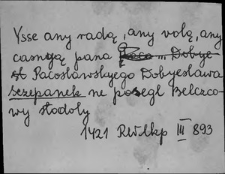 Ysse any radą, any volą, any
casnyą pana Dobye
st Pacoslawskyego Dobyeslawa
szepanek ne posegl Belczco
wy stodoly
1421 RWlkp III 893